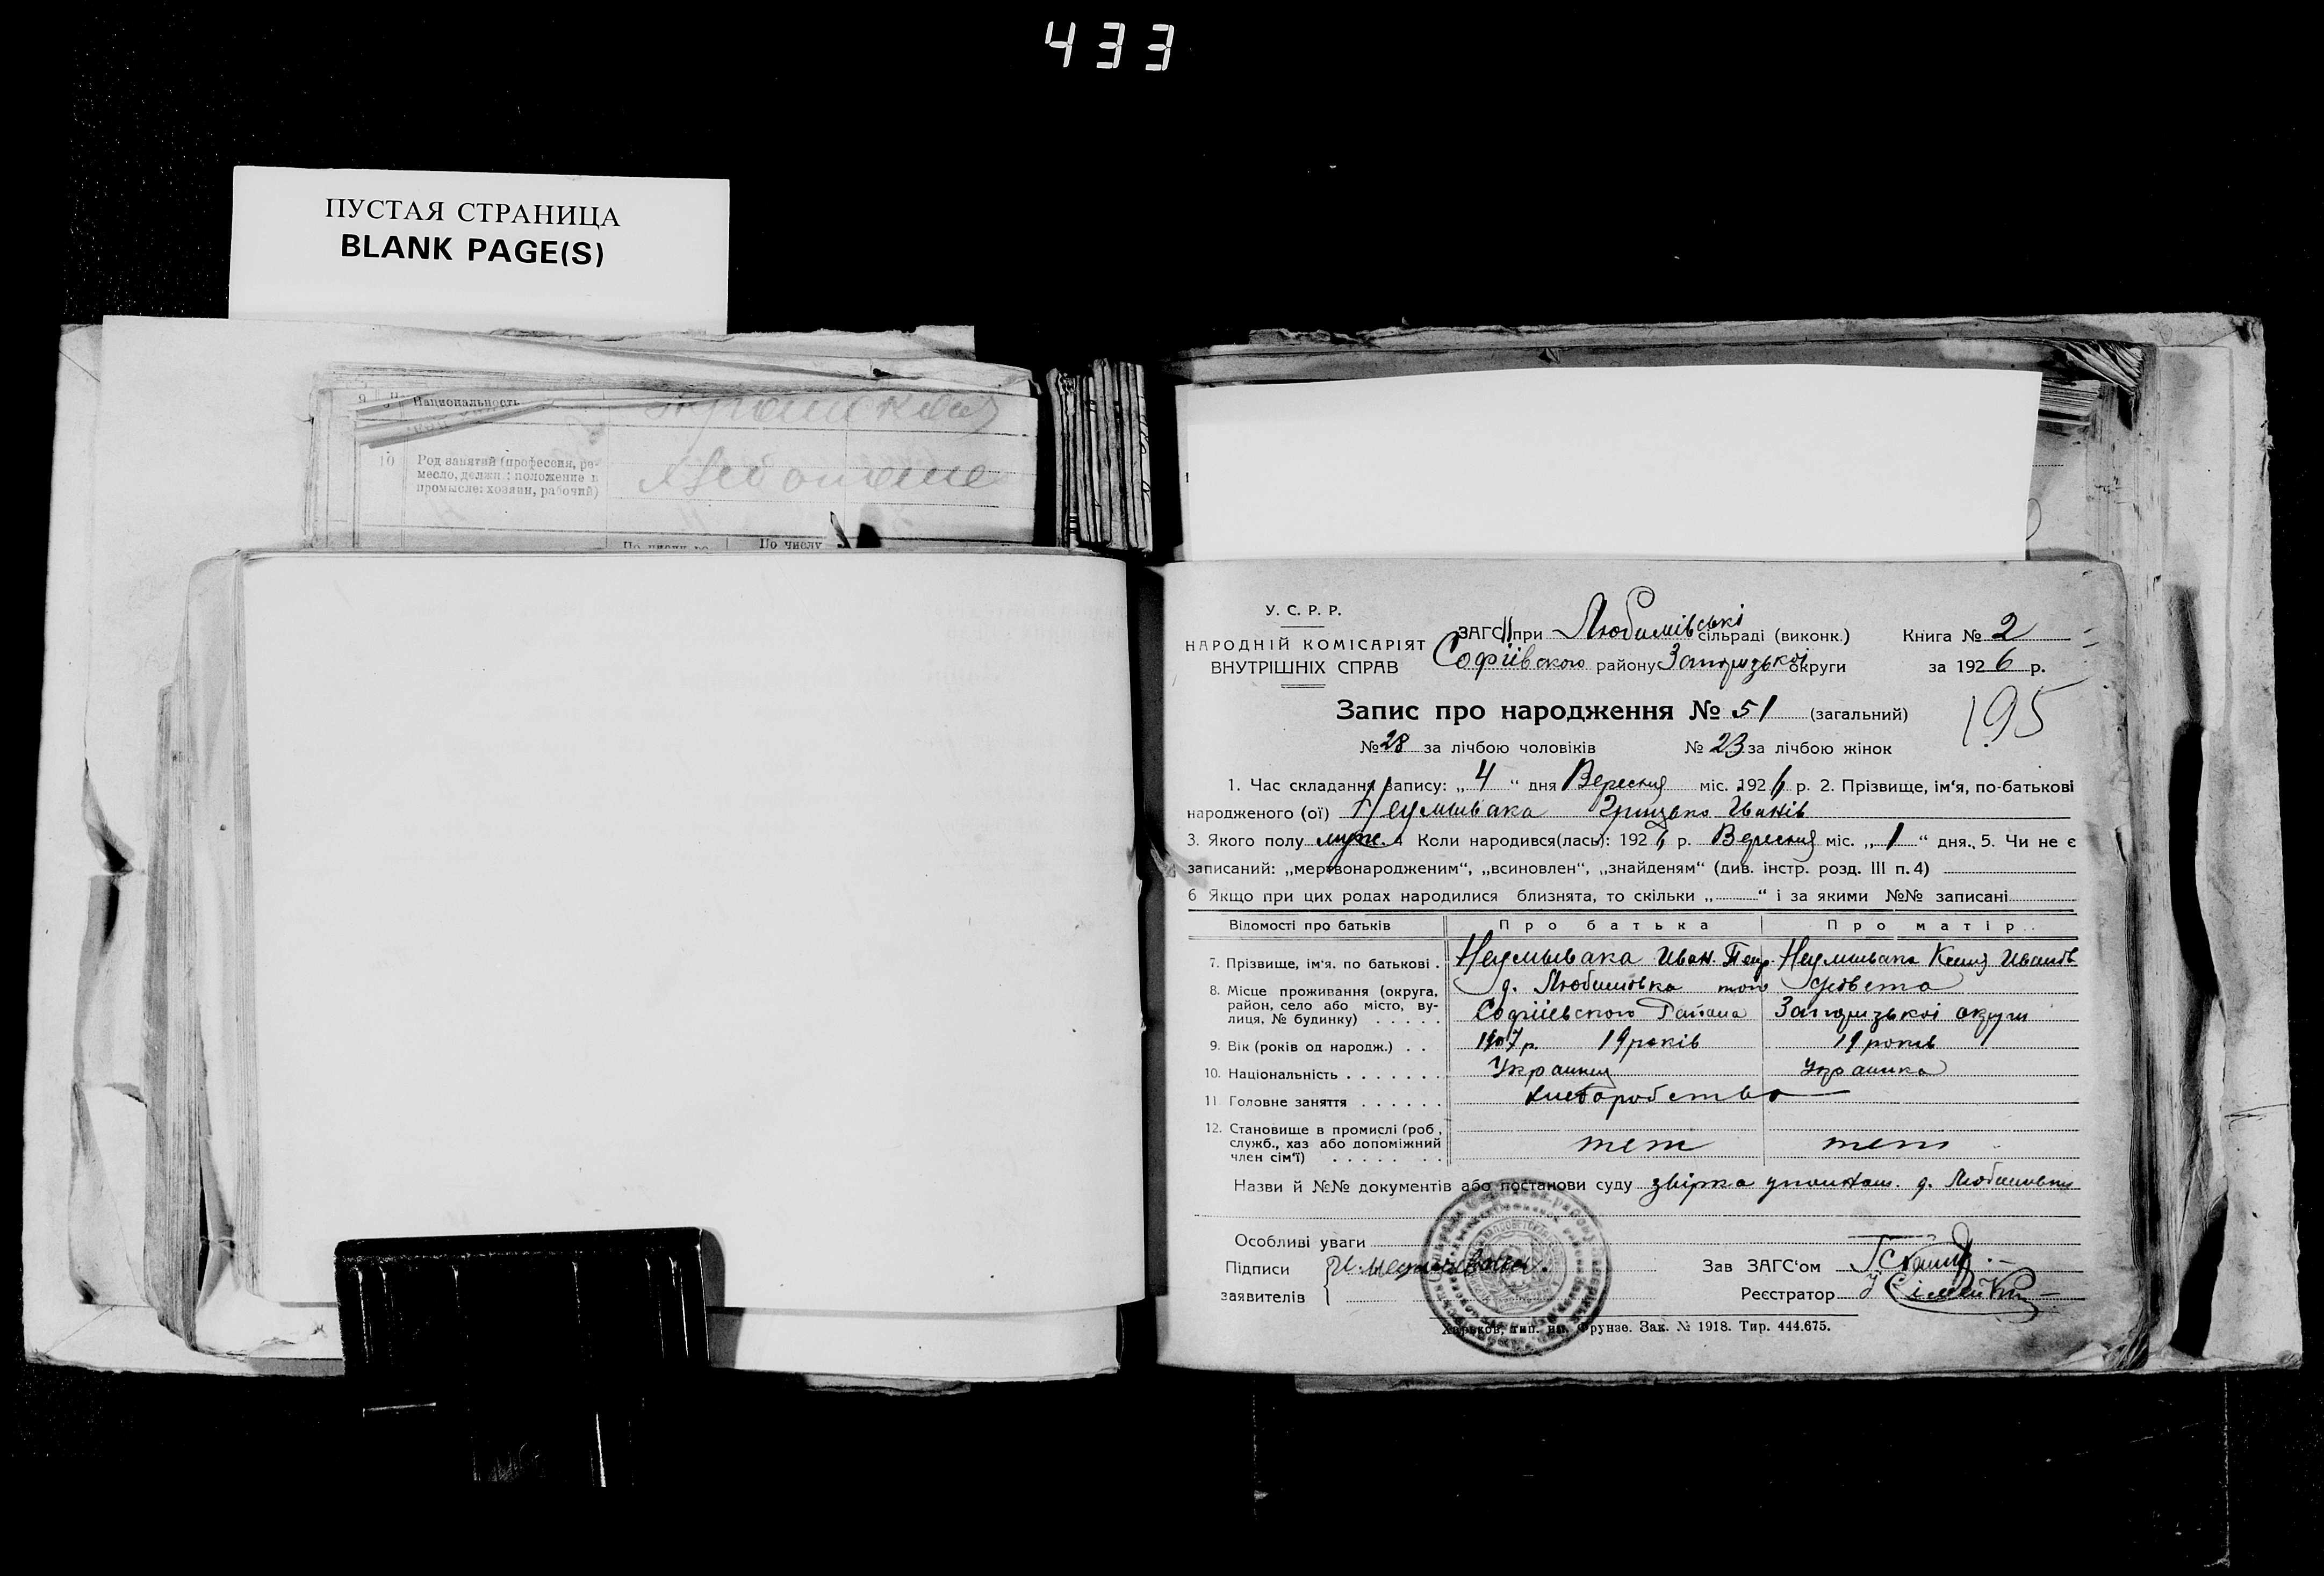 433
ПУСТАЯ СТРАНИЦА
BLANK PAGE(S)
9 Национальность
10 Род занятий (профессия, ре-
месло, должн.: положение в
промысле: хозяин, рабочий)
По числу
У. С. Р. Р.
НАРОДНІЙ КОМІСАРІЯТ
ВНУТРІШНІХ СПРАВ
ЗАГС при Любимівські сільраді (виконк.)
Софіївского району Запорізької округи
Книга № 2
за 1926 р.
195
Запис про народження № 51 (загальний)
№ 28 за лічбою чоловіків № 23 за лічбою жінок
1. Час складання запису: „ 4 “ дня Вересня міс. 1926 р. 2. Прізвище, ім‘я, по-батькові
народженого (ої) Неумывака Грицько Іванів
3. Якого полу муж. 4 Коли народився(лась): 1926 р. Вересня міс. „ 1 “ дня. 5. Чи не є
записаний: „мертвонародженим“, „всиновлен“, „знайденям“ (див. інстр. розд. III п.4)
6 Якщо при цих родах народилися близнята, то скільки „ “ і за якими №№ записані
Відомості про батьків Про батька Про матір
7. Прізвище, ім‘я, по батькові . Неумывака Иван Петр. Неумывака Ксения
8. Місце проживання (округа,
район, село або місто, ву-
лиця, № будинку) . . . . .
д. Любимовка того
Софіївского Района Запорізької округи
9. Вік (років од народж.) . . 1907 р. 19 років 19 років
10. Національність . . . . . . . Украинец Украинка
11 Головне заняття . . . . . . хлеборобство
12. Становище в промислі (роб,
служб., хаз або допоміжний
член сім‘ї) . . . . . . .
Назви й №№ документів або постанови суду звірка д. Любимовки
Особливі уваги
Підписи
заявителів
Зав ЗАГС‘ом
Реєстратор
Харьков, тип. им. Фрунзе. Зак. № 1918. Тир. 444.675.